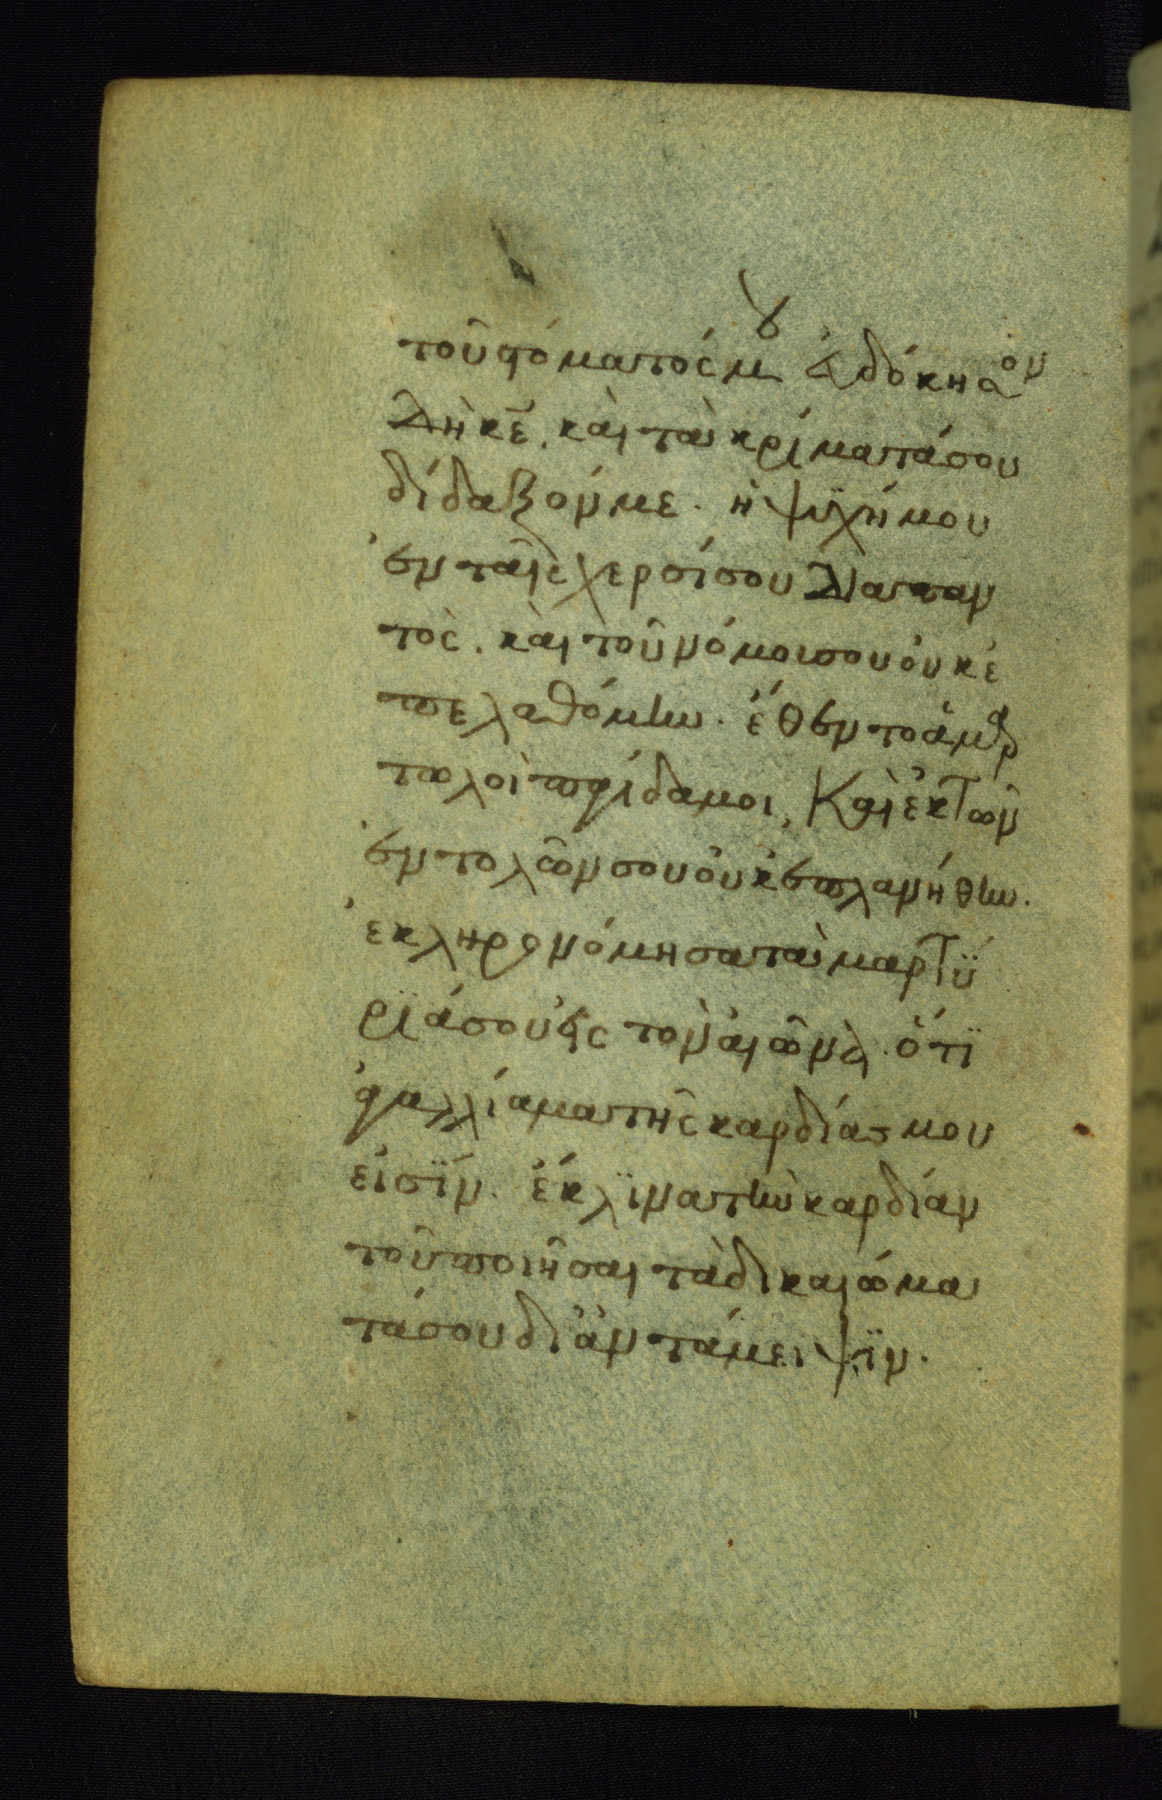 τοῦ στόματός μου εὐδόκησον
δὴ κε̅. καὶ τὰ κρίματά σου
δίδαξόν με. ἡ ψυχή μου
ἐν ταῖς χερσί σου διαπαν
τὸς. καὶ τοῦ νόμου σου οὐκ ἐ
πελαθόμην. ἔθεντο ἁμαρ
τωλοὶ παγίδα μοι, καὶ ἐκ τῶν
ἐντολῶν σου οὐκ ἐπλανήθην.
ἐκληρονόμησα τὰ μαρτύ
ριά σου εἰς τὸν αἰῶνα. ὅτι
ἀγαλλίαμα τῆς καρδίας μου
εἰσίν. ἔκλινα τὴν καρδίαν
τοῦ ποιῆσαι τὰ δικαιώμα
τά σου δι' ἀντάμειψιν.